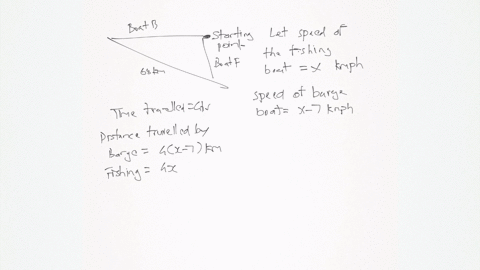 Boat B
Starting
point
Boat F
Let speed of
the fishing
boat = x kmph
speed of barge
boat = x-7 kmph
Time travelled =
Distance travelled by
Barge = 4(x-7) km
Fishing = 4x